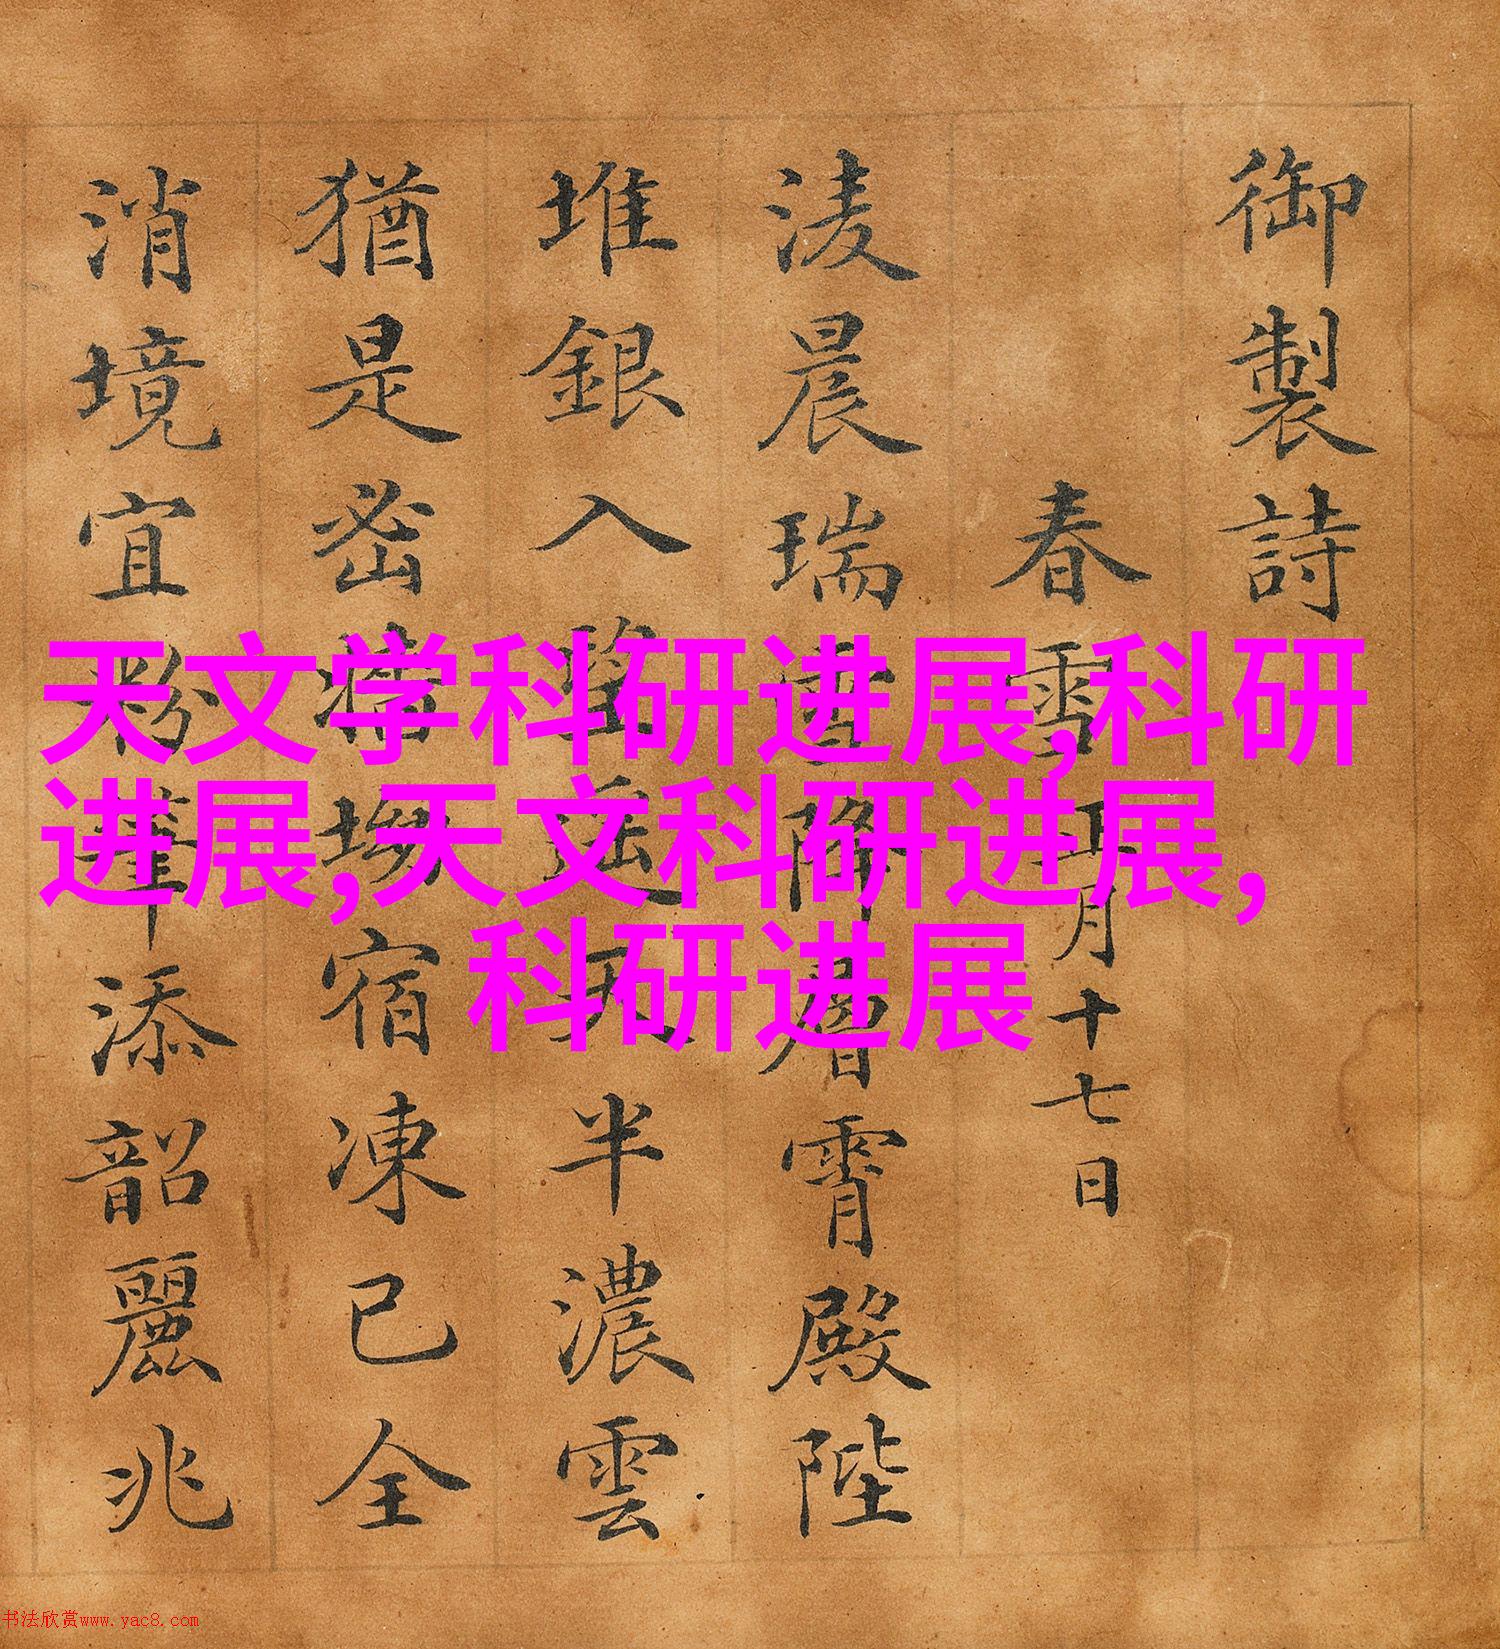 御製詩
春雪 正月十七日
淩晨瑞雪降層霄殿陛
堆銀入望遙天半濃雲
猶是密坳宿凍已全
消境宜粉添韶麗兆
天文学科研进展,科研
进展,天文科研进展,
科研进展
书法欣赏www.yac8.com